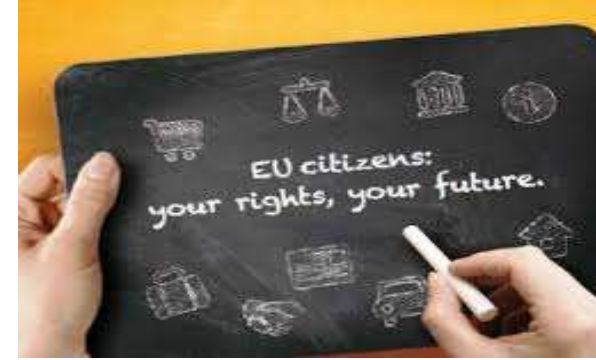 EU citizens:
your rights, your future.